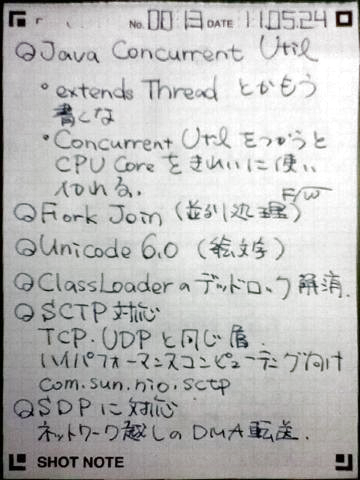 No. 00:13 DATE 11.05.24
Java Concurrent Util
・extends Thread とかもう
書くな
・Concurrent Utilをつかうと
CPU Coreをきれいに使い
切れる。
F/W
Fork Join (並列処理)
Unicode 6.0 (絵文字)
ClassLoaderのデッドロック解消.
SCTP対応
TCP.UDPと同じ層.
ハイパフォーマンスコンピューティング向け
com.sun.nio.sctp
SDPに対応
ネットワーク越しのDMA転送.
SHOT NOTE